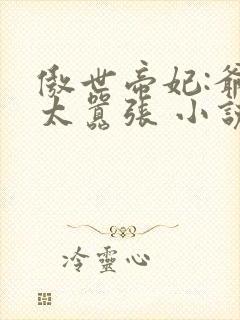 傲世帝妃:爺
太囂張 小說
冷靈心